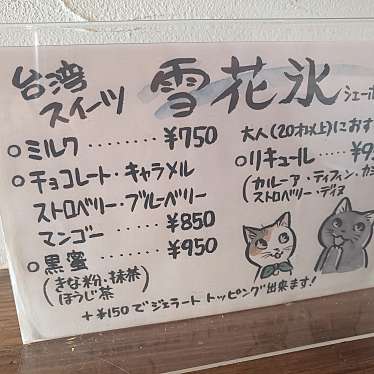 台湾スイーツ 雪花氷
ミルク ‥‥‥‥ ¥750
チョコレート・キャラメル
ストロベリー・ブルーベリー
マンゴー ‥‥‥ ¥850
黒蜜 ‥‥‥‥ ¥950
(きな粉、抹茶
ほうじ茶)
大人(20才以上)におす
リキュール ‥‥‥ ¥9
(カルーア・ティフィン・カ
ストロベリー・ディヌ
+¥150でジェラートトッピング出来ます!